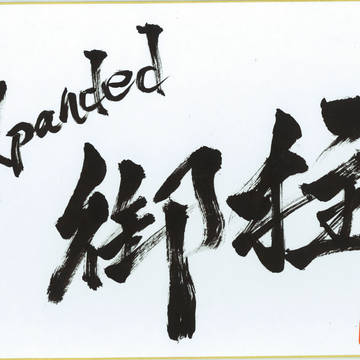 xpanded
御